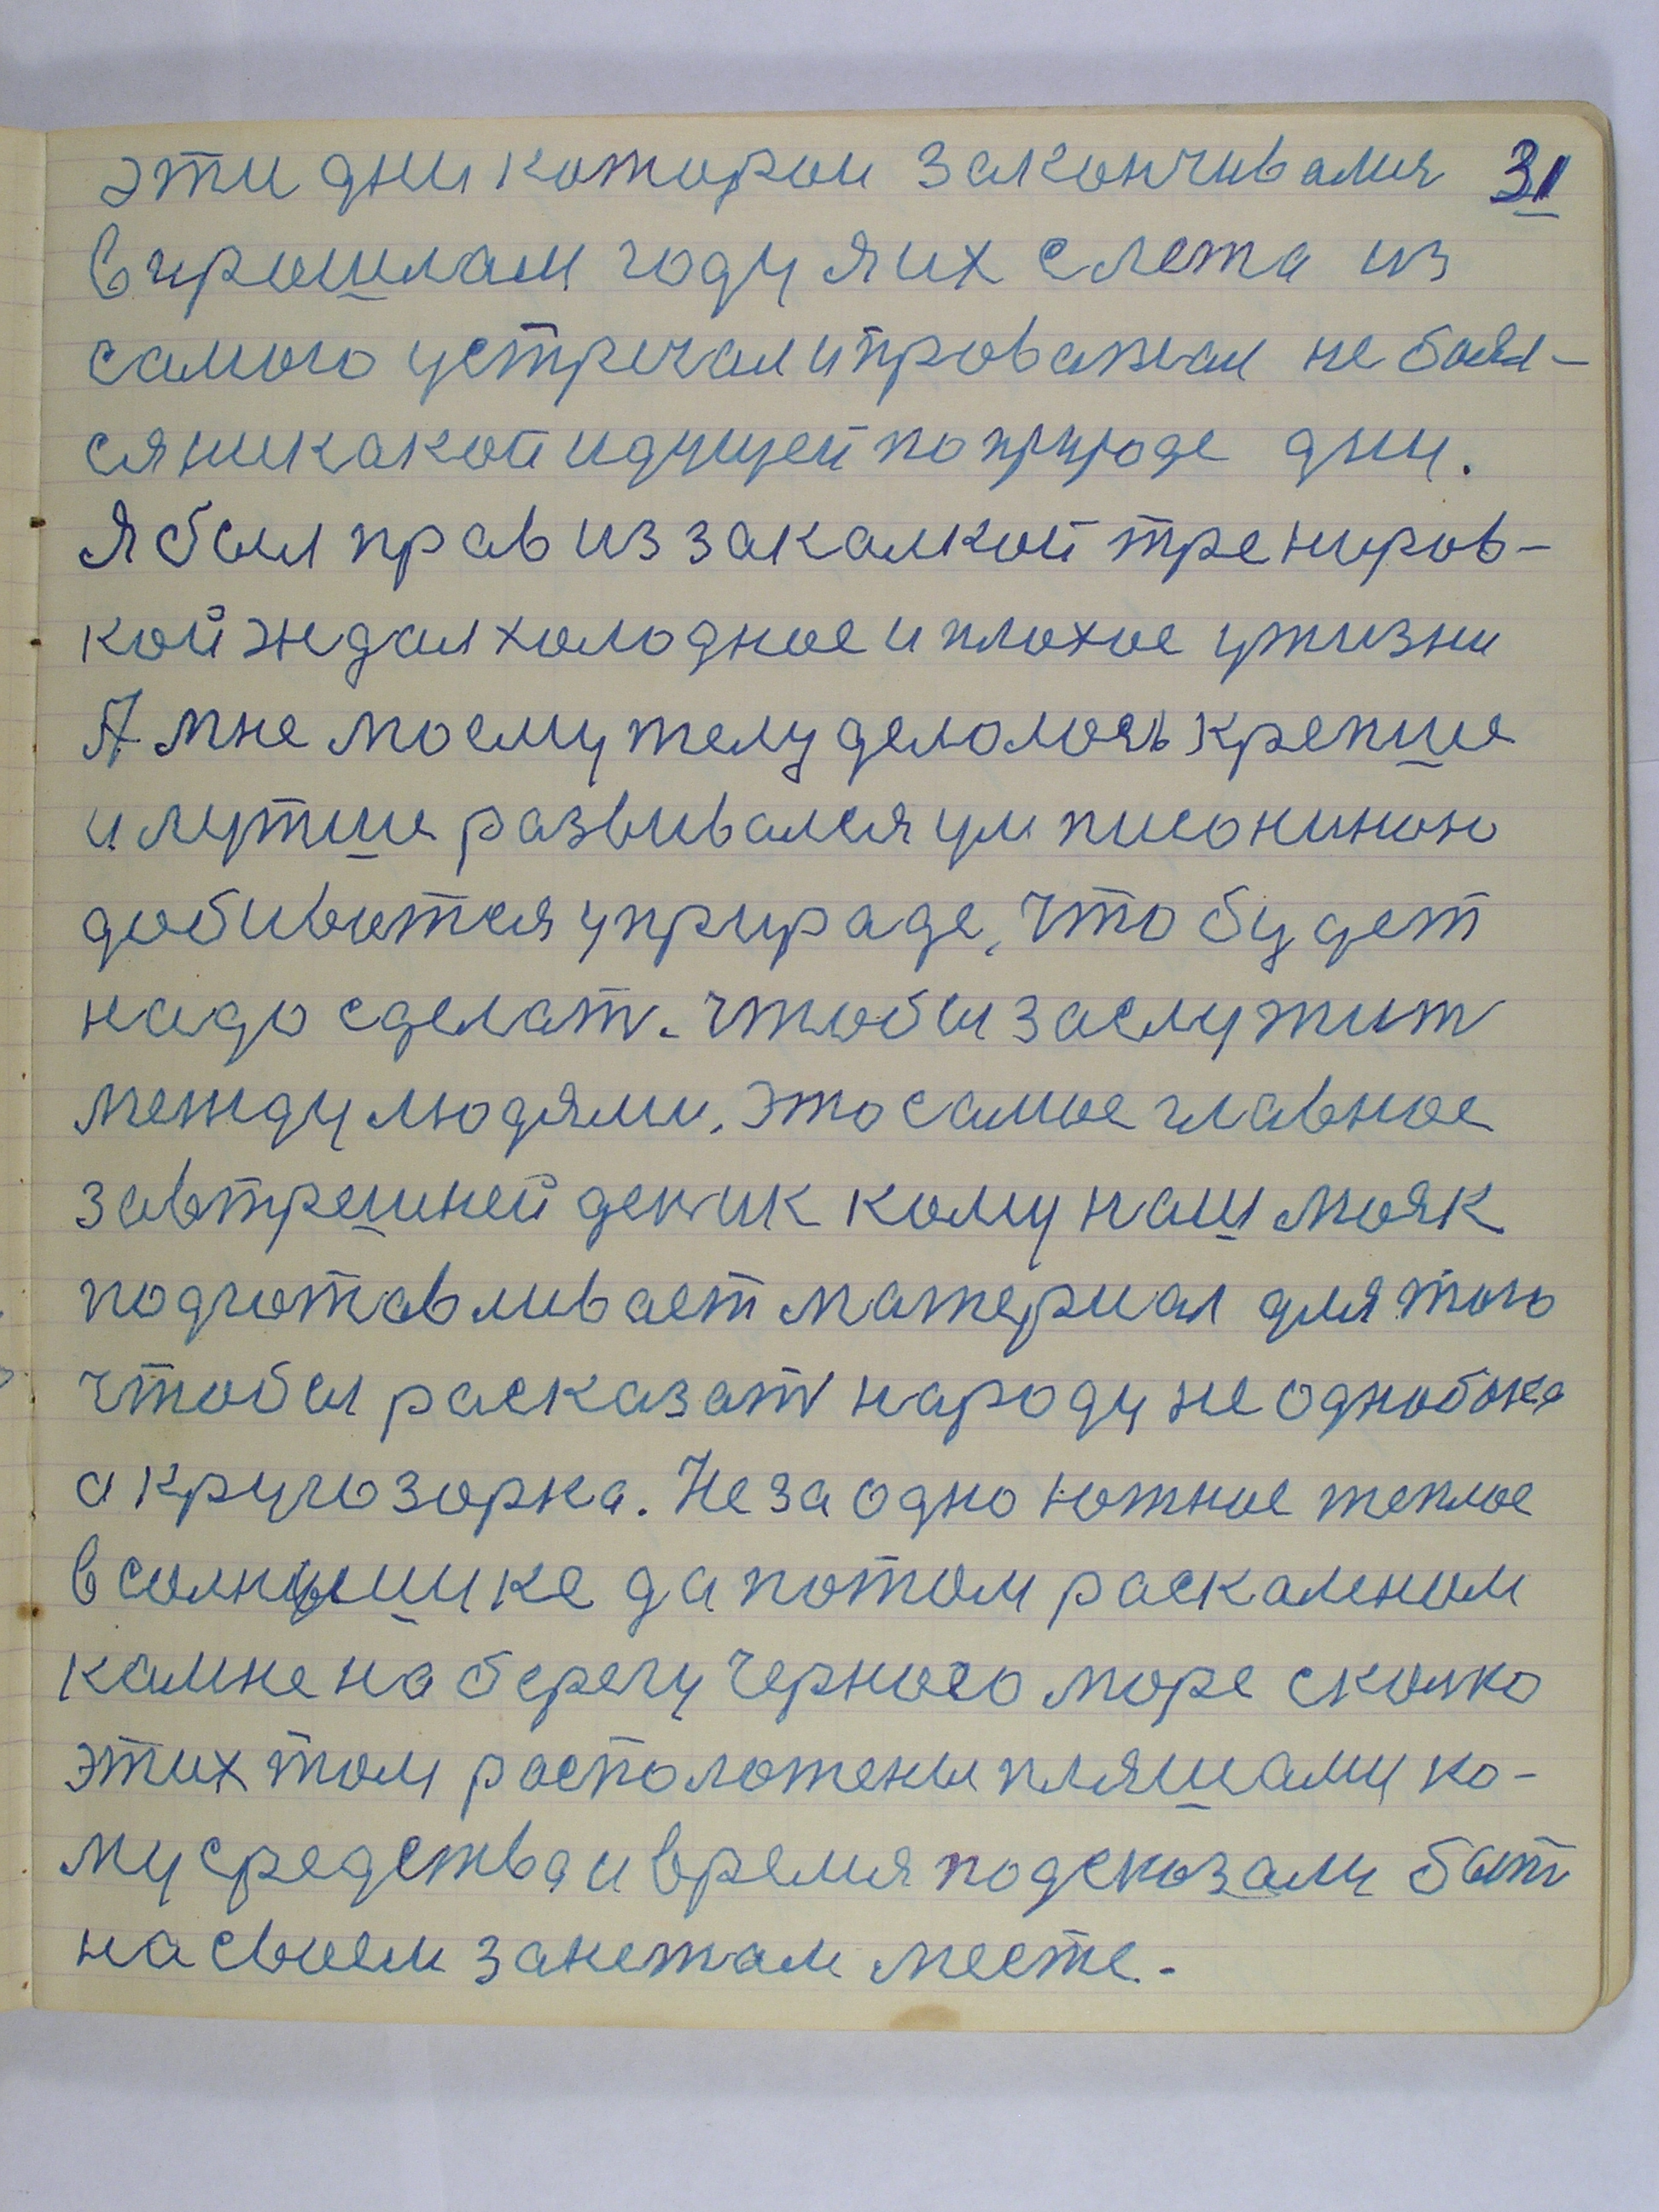 эти дни которои закончивалия 31
в прошлам году я их с лета из
самого устречал и проважал не боял-
ся никакой идущей по природе дни.
Я был прав из закалкой трениров-
кой ждал холодное и плохое у жизни
А мне моему телу делолось крепше
и лутше развивался ум писониною
добивится у природе, что будет
надо сделать. чтобы заслужит
между людями. Это самое главное
завтрешней деник кому наш мояк
подготавливает материал для того
чтобы расказать народу не однобока
а кругозорка. Не за одно южное теплое
в солнышке да потом раскаленом
камне на берегу Черного море сколко
этих там расположены пляшами ко-
му средства и время подсказали быть
на своем занетам месте.-